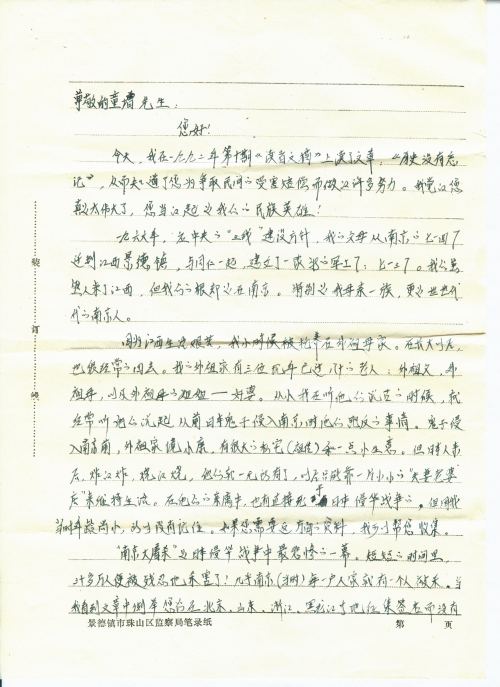 尊敬的童增先生：
您好！
今天，我在一九九二年第十期《读者文摘》上读了文章，《历史没有忘
记》，从而知道了您为争取民间受害赔偿而做的许多努力。我觉得您
真的太伟大了，您当得起是我们的民族英雄！
一九六九年，在中央的“三线”建设方针，我的父母从南京的七一四厂
迁到江西景德镇，与同仁一起，建立了一家的军工厂：七一三厂。我们虽
然人来了江西，但我们的根却是在南京。特别是我母亲一族，更是世世代
代的南京人。
因为江西生活艰苦，我小时候被托养在外祖母家。在长大以后，
也很经常的回去。我的外祖家有三位
祖母，以及外祖母的姐姐——好婆。从小我在听他们说话的时候，就
经常听到他们说起，从前日本鬼子侵入南京时他们的事情。鬼子侵
入南京前，外祖家境小康，有很大的和一点小生意。但日本人来
后，炸的炸，烧的烧，他们就一无所有了，以后只能靠一片小小的“夫妻老婆
店”来维持生活。在他们的亲属中，也有直接死于日本侵华战争的。但因我
当时年龄尚小，所以没有记住。如果您需要这方面的资料，我可以帮您收集。
“南京大屠杀”是日本侵华战争中最悲惨的一幕。短短的时间里，
三十多万人便被残忍地杀害了！几乎南京(当时)每一户人家就有一个被杀。当
我看到文章中例举您们在北京、山东、浙江、黑龙江等地征集签名而没有
景德镇市珠山区监察局笔录纸
第 页
装
订
线